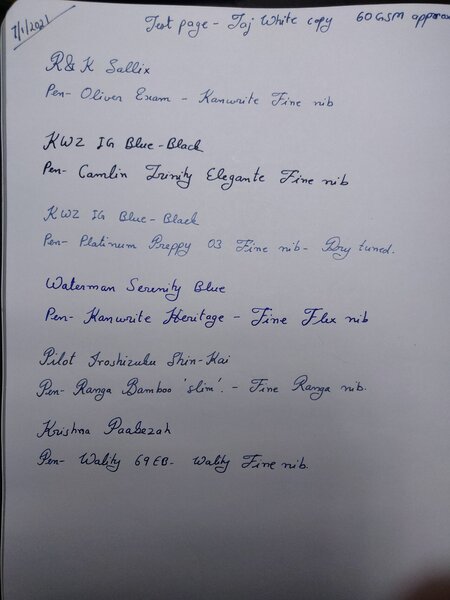 7/1/2021
Test page - Taj White copy 60GSM approx
R&K Sallix
Pen- Oliver Exam - Kanwrite Fine nib
KWZ IG Blue-Black
Pen- Camlin Trinity Elegante Fine nib
KWZ IG Blue-Black
Pen- Platinum Preppy 03 Fine nib- Dry tuned.
Waterman Serenity Blue
Pen- Kanwrite Heritage - Fine Flex nib
Pilot Iroshizuku Shin-Kai
Pen- Ranga Bamboo 'slim'. - Fine Ranga nib.
Krishna Paabezah
Pen- Wality 69EB- Wality Fine nib.